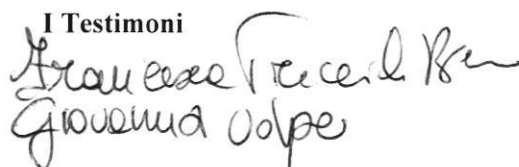 I Testimoni
Francesca
Giovanna Volpe